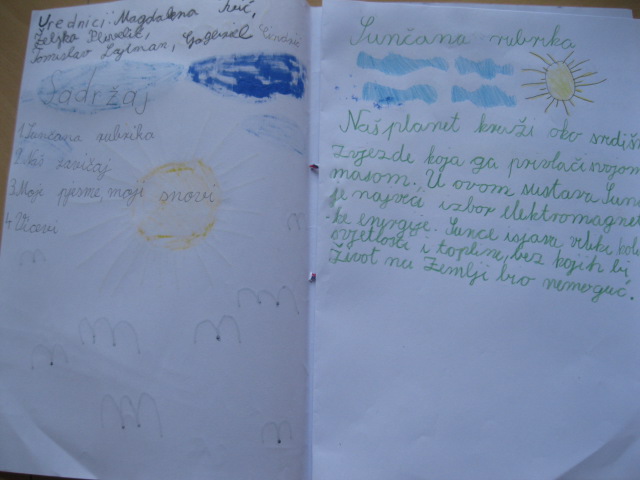 Urednici: Magdalena
Željka
Tomislav
Sadržaj
1. Sunčana rubrika
2. Naš zavičaj
3. Moje pjesme, moji snovi
4. Vicevi
Sunčana rubrika
Naš planet kruži oko središn
zvijezde koja ga privlači svojom
masom. U ovom sustavu Sunc
je najveći izbor elektromagnet
ke energije. Sunce isjava veliki koli
svjetlosti i topline, bez kojih bi
život na Zemlji bio nemoguć.